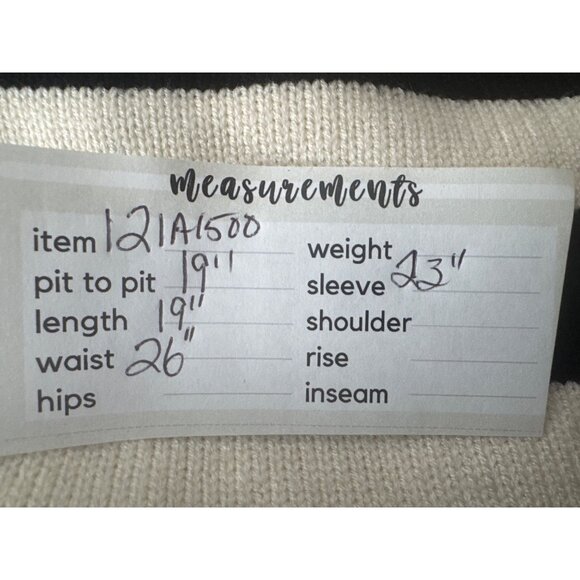 measurements
item 121A1500
pit to pit 19"
length 19"
waist 26"
hips
weight
sleeve 23"
shoulder
rise
inseam